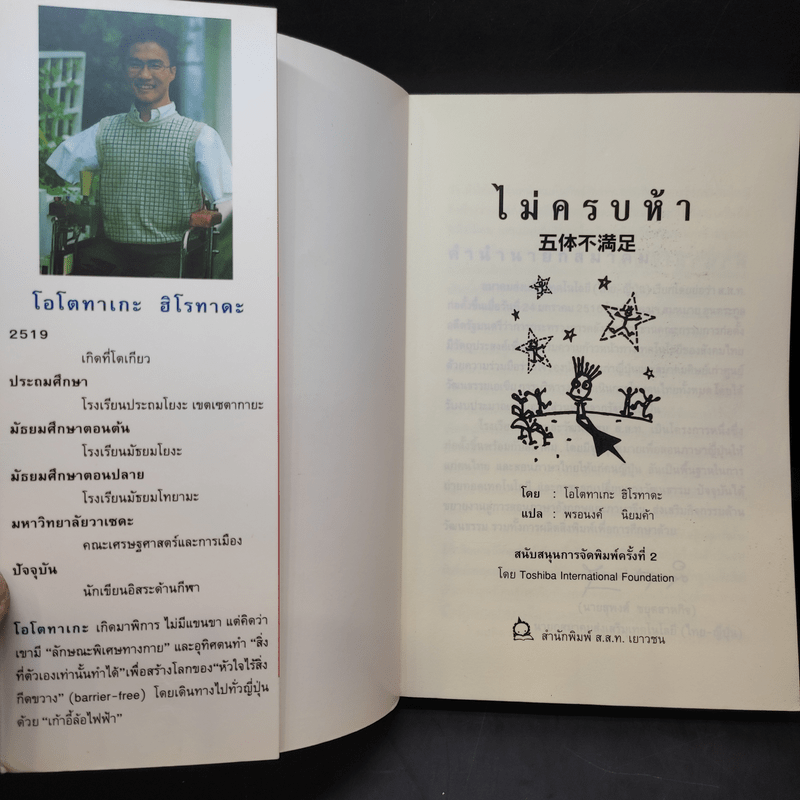 โอโตทาเกะ ฮิโรทาดะ
2519
เกิดที่โตเกียว
ประถมศึกษา
โรงเรียนประถมโยงะ เขตเซตากายะ
มัธยมศึกษาตอนต้น
โรงเรียนมัธยมโยงะ
มัธยมศึกษาตอนปลาย
โรงเรียนมัธยมโทยามะ
มหาวิทยาลัยวาเซดะ
คณะเศรษฐศาสตร์และการเมือง
ปัจจุบัน
นักเขียนอิสระด้านกีฬา
โอโตทาเกะ เกิดมาพิการ ไม่มีแขนขา แต่คิดว่า
เขามี “ลักษณะพิเศษทางกาย” และอุทิศตนทำ “สิ่ง
ที่ตัวเองเท่านั้นทำได้”เพื่อสร้างโลกของ“หัวใจไร้สิ่ง
กีดขวาง” (barrier-free) โดยเดินทางไปทั่วญี่ปุ่น
ด้วย “เก้าอี้ล้อไฟฟ้า”
ไม่ครบห้า
五体不満足
โดย : โอโตทาเกะ ฮิโรทาดะ
แปล : พรอนงค์ นิยมค้า
สนับสนุนการจัดพิมพ์ครั้งที่ 2
โดย Toshiba International Foundation
สำนักพิมพ์ ส.ส.ท. เยาวชน